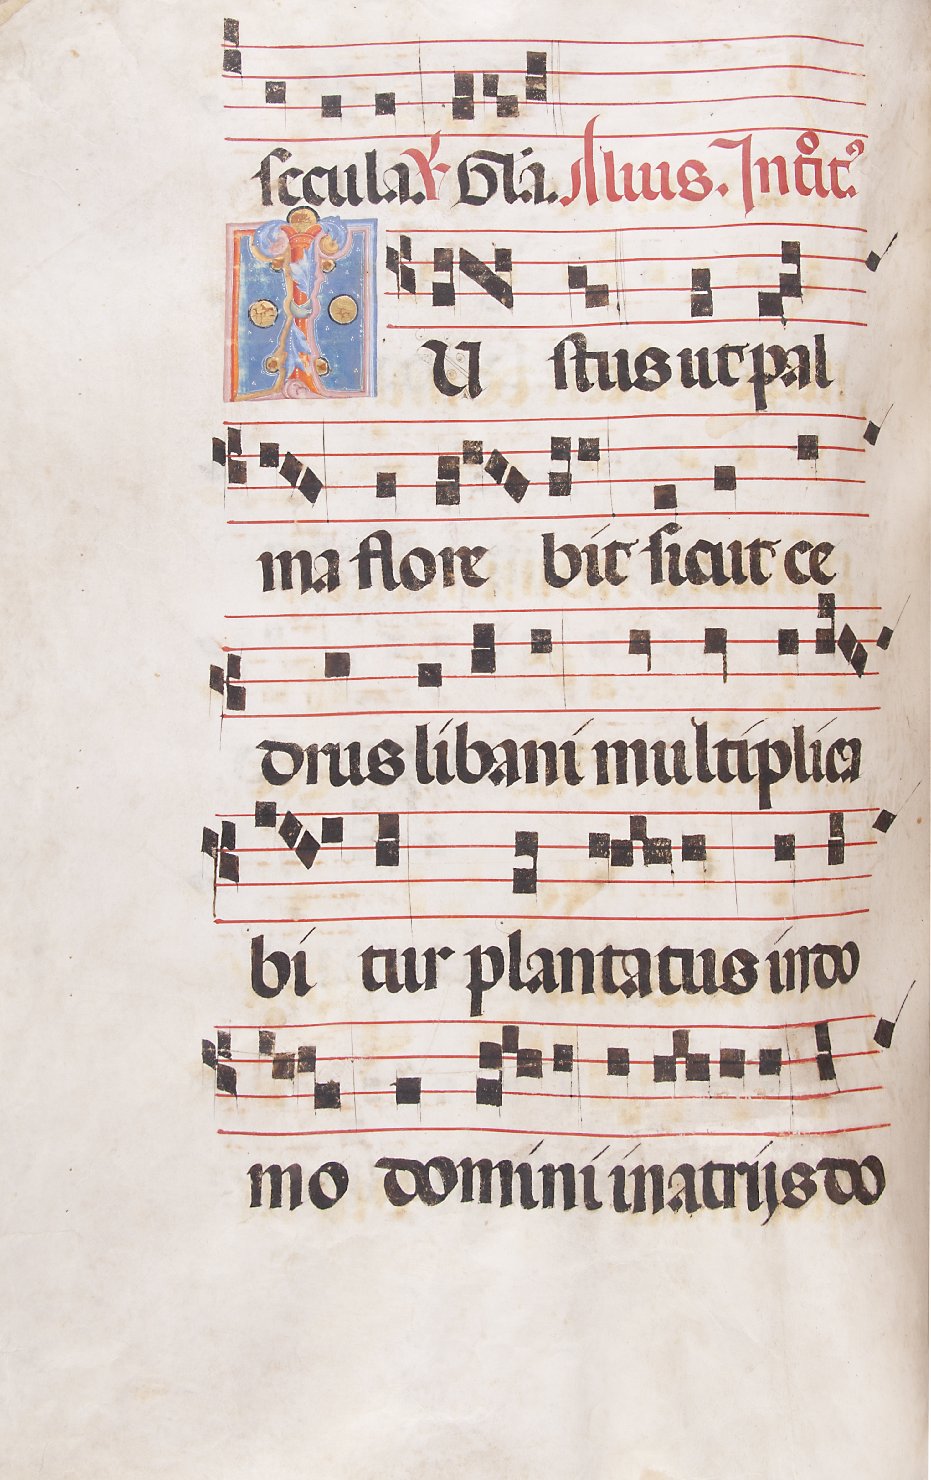 secula. ℣ Gl̃a. Alius. Introit᷒
IU stus ut pal
ma flore bit sicut ce
drus libani multiplica
bi tur plantatus in do
mo domini in atrijs do